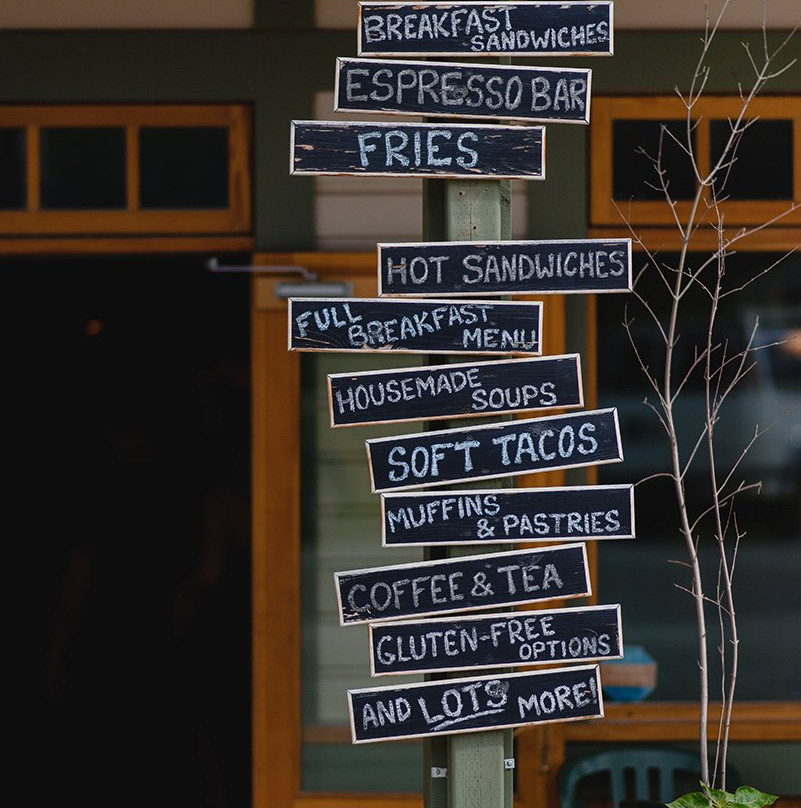 BREAKFAST
SANDWICHES
ESPRESSO BAR
FRIES
HOT SANDWICHES
FULL
BREAKFAST
MENU
HOUSEMADE
SOUPS
SOFT TACOS
MUFFINS
& PASTRIES
COFFEE & TEA
GLUTEN-FREE
OPTIONS
AND LOTS MORE!